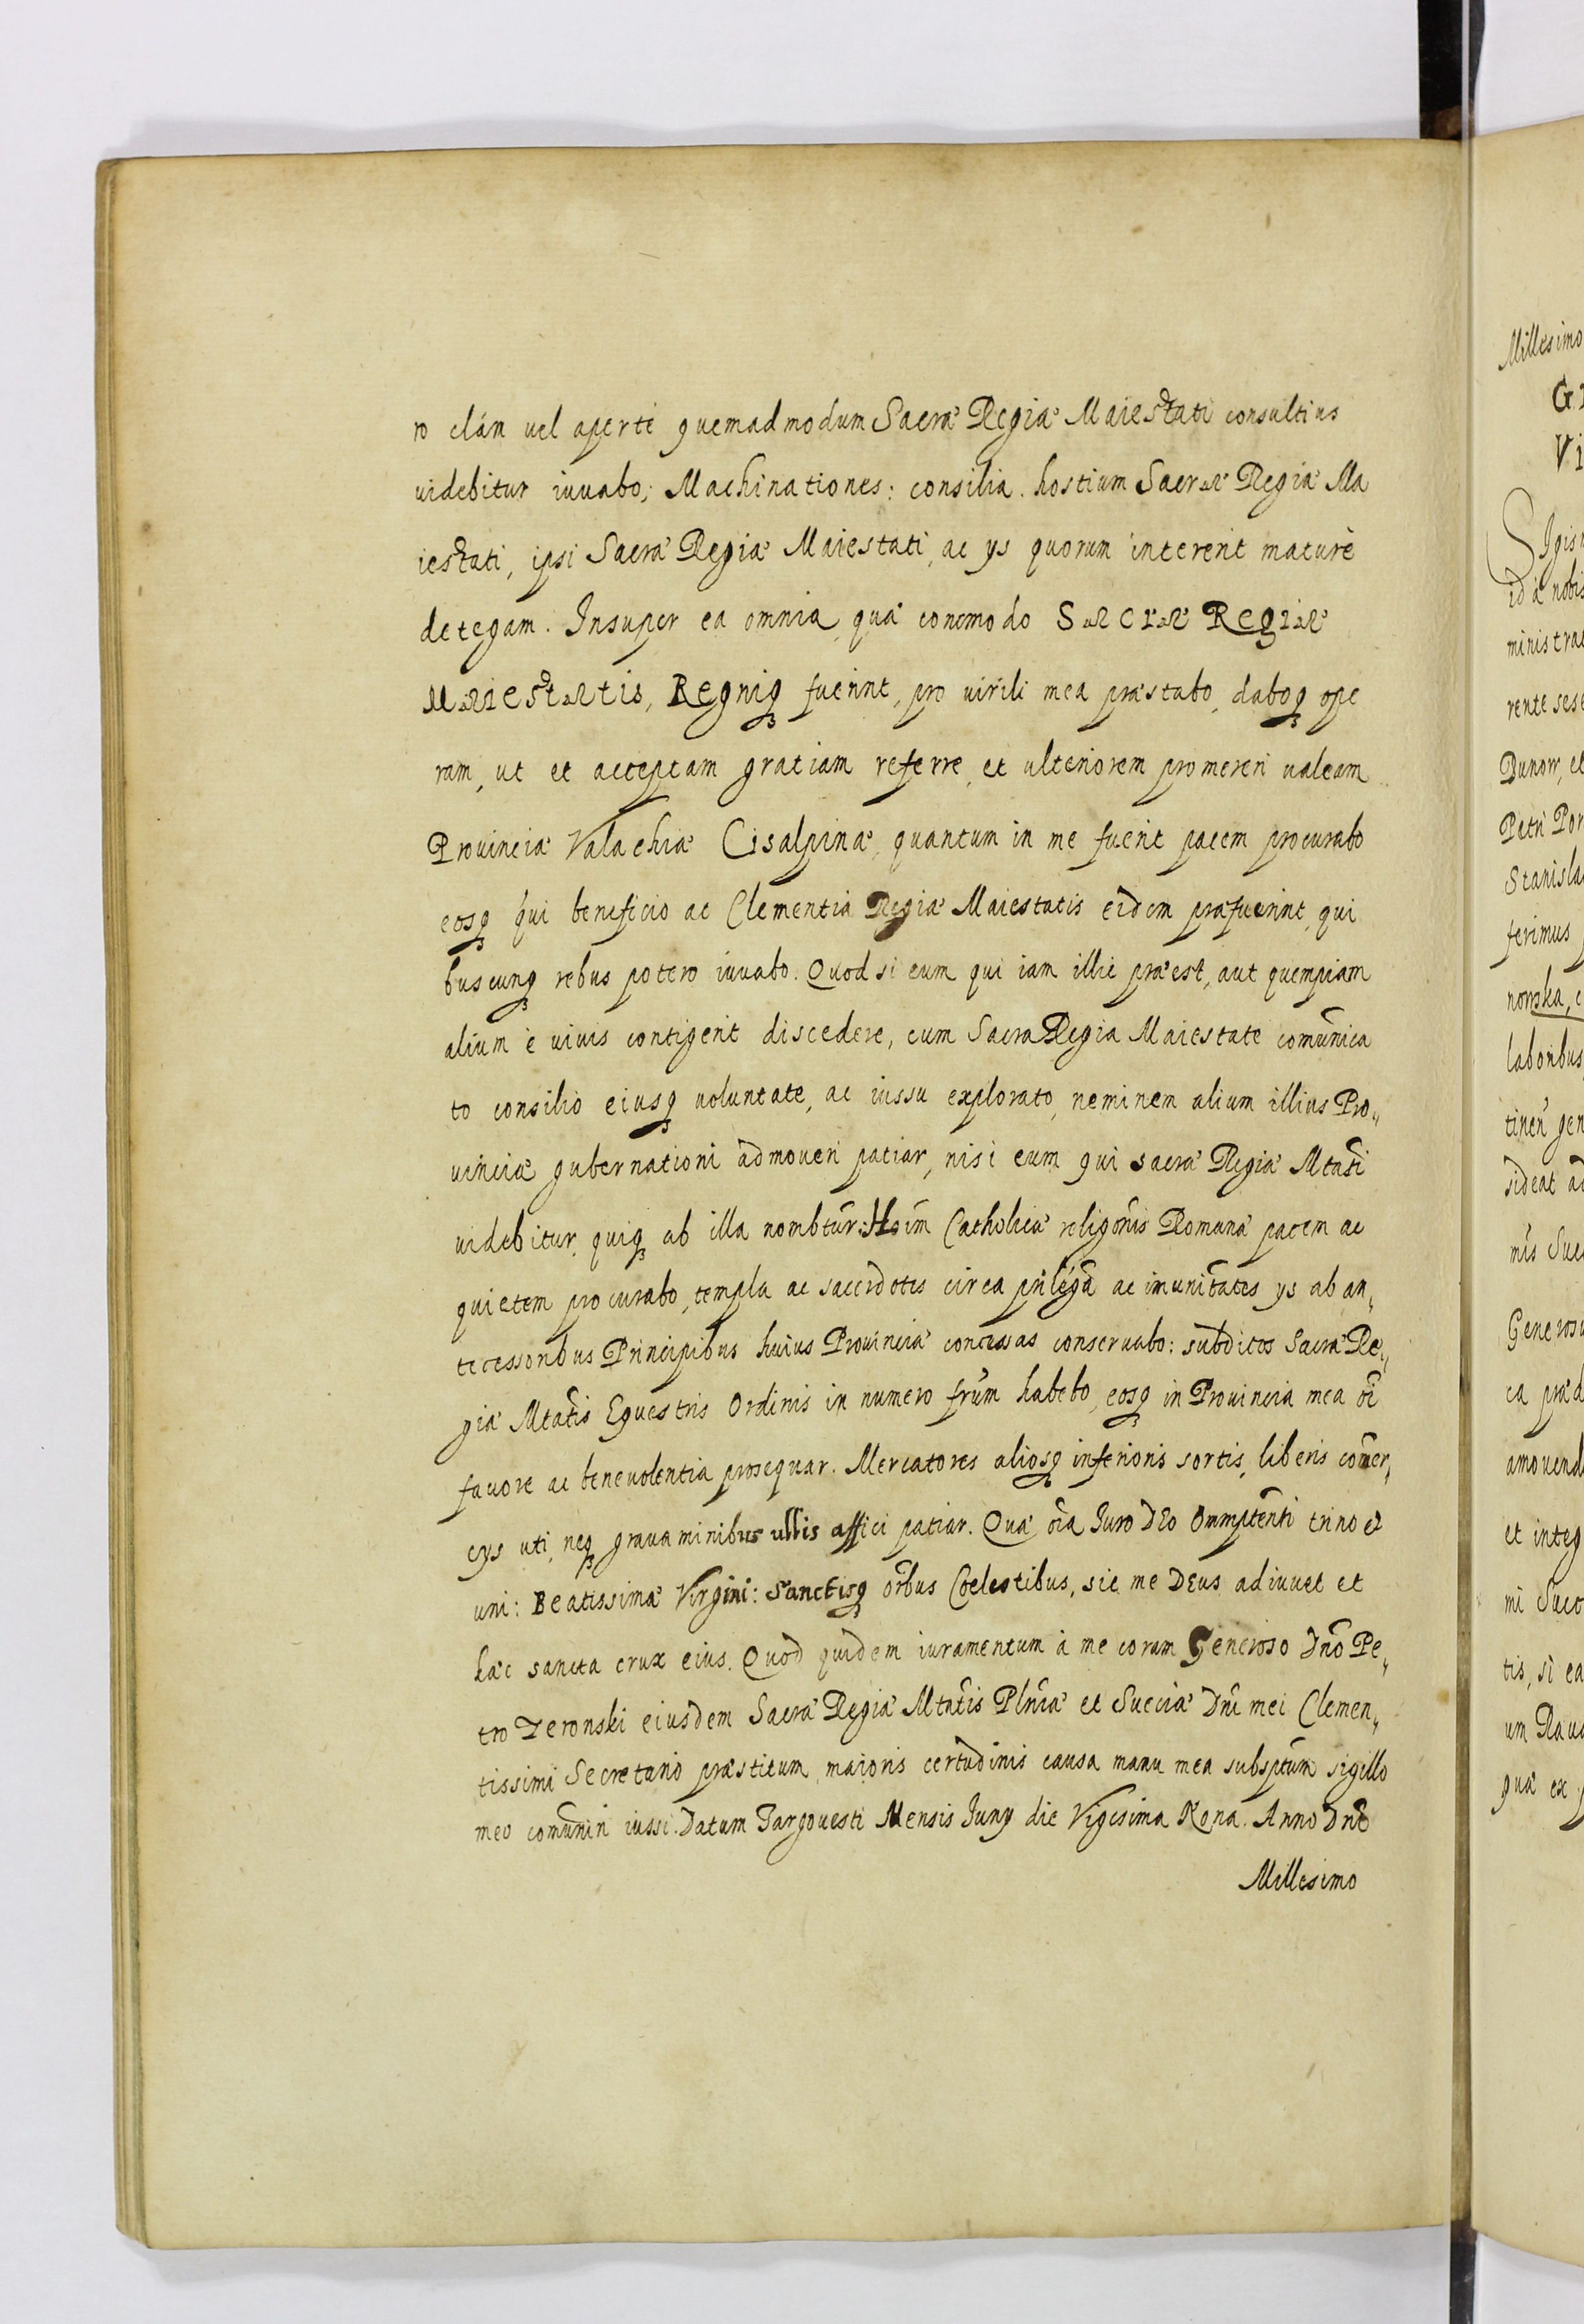 ro clám uel aperté quemadmodum Sacræ Regiæ Maiestati consultius
uidebitur iuuabo; Machinationes: consilia. hostium Sacræ Regiæ Ma
iestati, ipsi Sacræ Regiæ Maiestati, ac ys quorum intererit maturè
detegam. Insuper ea omnia quæ commodo Sacræ Regiæ
Maiestatis, Regniq fuerint, pro uirili mea præstabo, daboq ope
ram, ut et acceptam gratiam referre, et ulteriorem promereri ualeam
Prouinciæ Valachiæ Cisalpinæ, quantum in me fuerit pacem procurabo
eosq qui beneficio ac Clementia Regiæ Maiestatis eidem præfuerint, qui
buscunq rebus potero iuuabo. Quod si eum qui iam illic præest, aut quempiam
alium è uiuis contigerit discedere, cum Sacra Regia Maiestate comũnica
to consilio eiusq uoluntate, ac iussu explorato, neminem alium illius Pro„
uinciæ gubernationi admoueri patiar, nisi eum qui sacræ Regiæ Mtati
uidebitur, quiq ab illa nombtur: Hoim Catholicæ religonis Romanæ pacem ac
quietem procurabo, templa ac sacerdotes circa prilega ac imunitates ys ab an„
tecessoribus Principibus huius Prouinciæ concessas conseruabo: subditos Sacræ Re„
giæ Mtatis Equestris Ordinis in numero frum habebo, eosq in Prouincia mea oi
fauore ac beneuolentia prosequar. Mercatores aliosq inferioris sortis, liberis comer„
cys uti, neq grauaminibus ullis affici patiar. Quæ oia Iuro DEo Omnptenti trino et
uni: Beatissimæ Virgini: Sanctisq orbus Coelestibus, sic me DEus adiuuet et
hæc sancta crux eius. Quod quidem iuramentum à me coram Generoso Dno Pe„
tro Zeronski eiusdem Sacræ Regiæ Mtatis Plniæ et Sueciæ Dni mei Clemen„
tissimi Secretario præstitum, maioris certudinis causa manu mea subsptum sigillo
meo comuniri iussi. Datum Targouesti Mensis Iuny die Vigesima Nona. Anno Dni
Millesimo
Millesimo
Sigis
id à nobis
rente
Dunow, et
Petri
ferimus
nowska,
laboribus
sideat
ea præd
et integ
tis, si ea
quæ ex